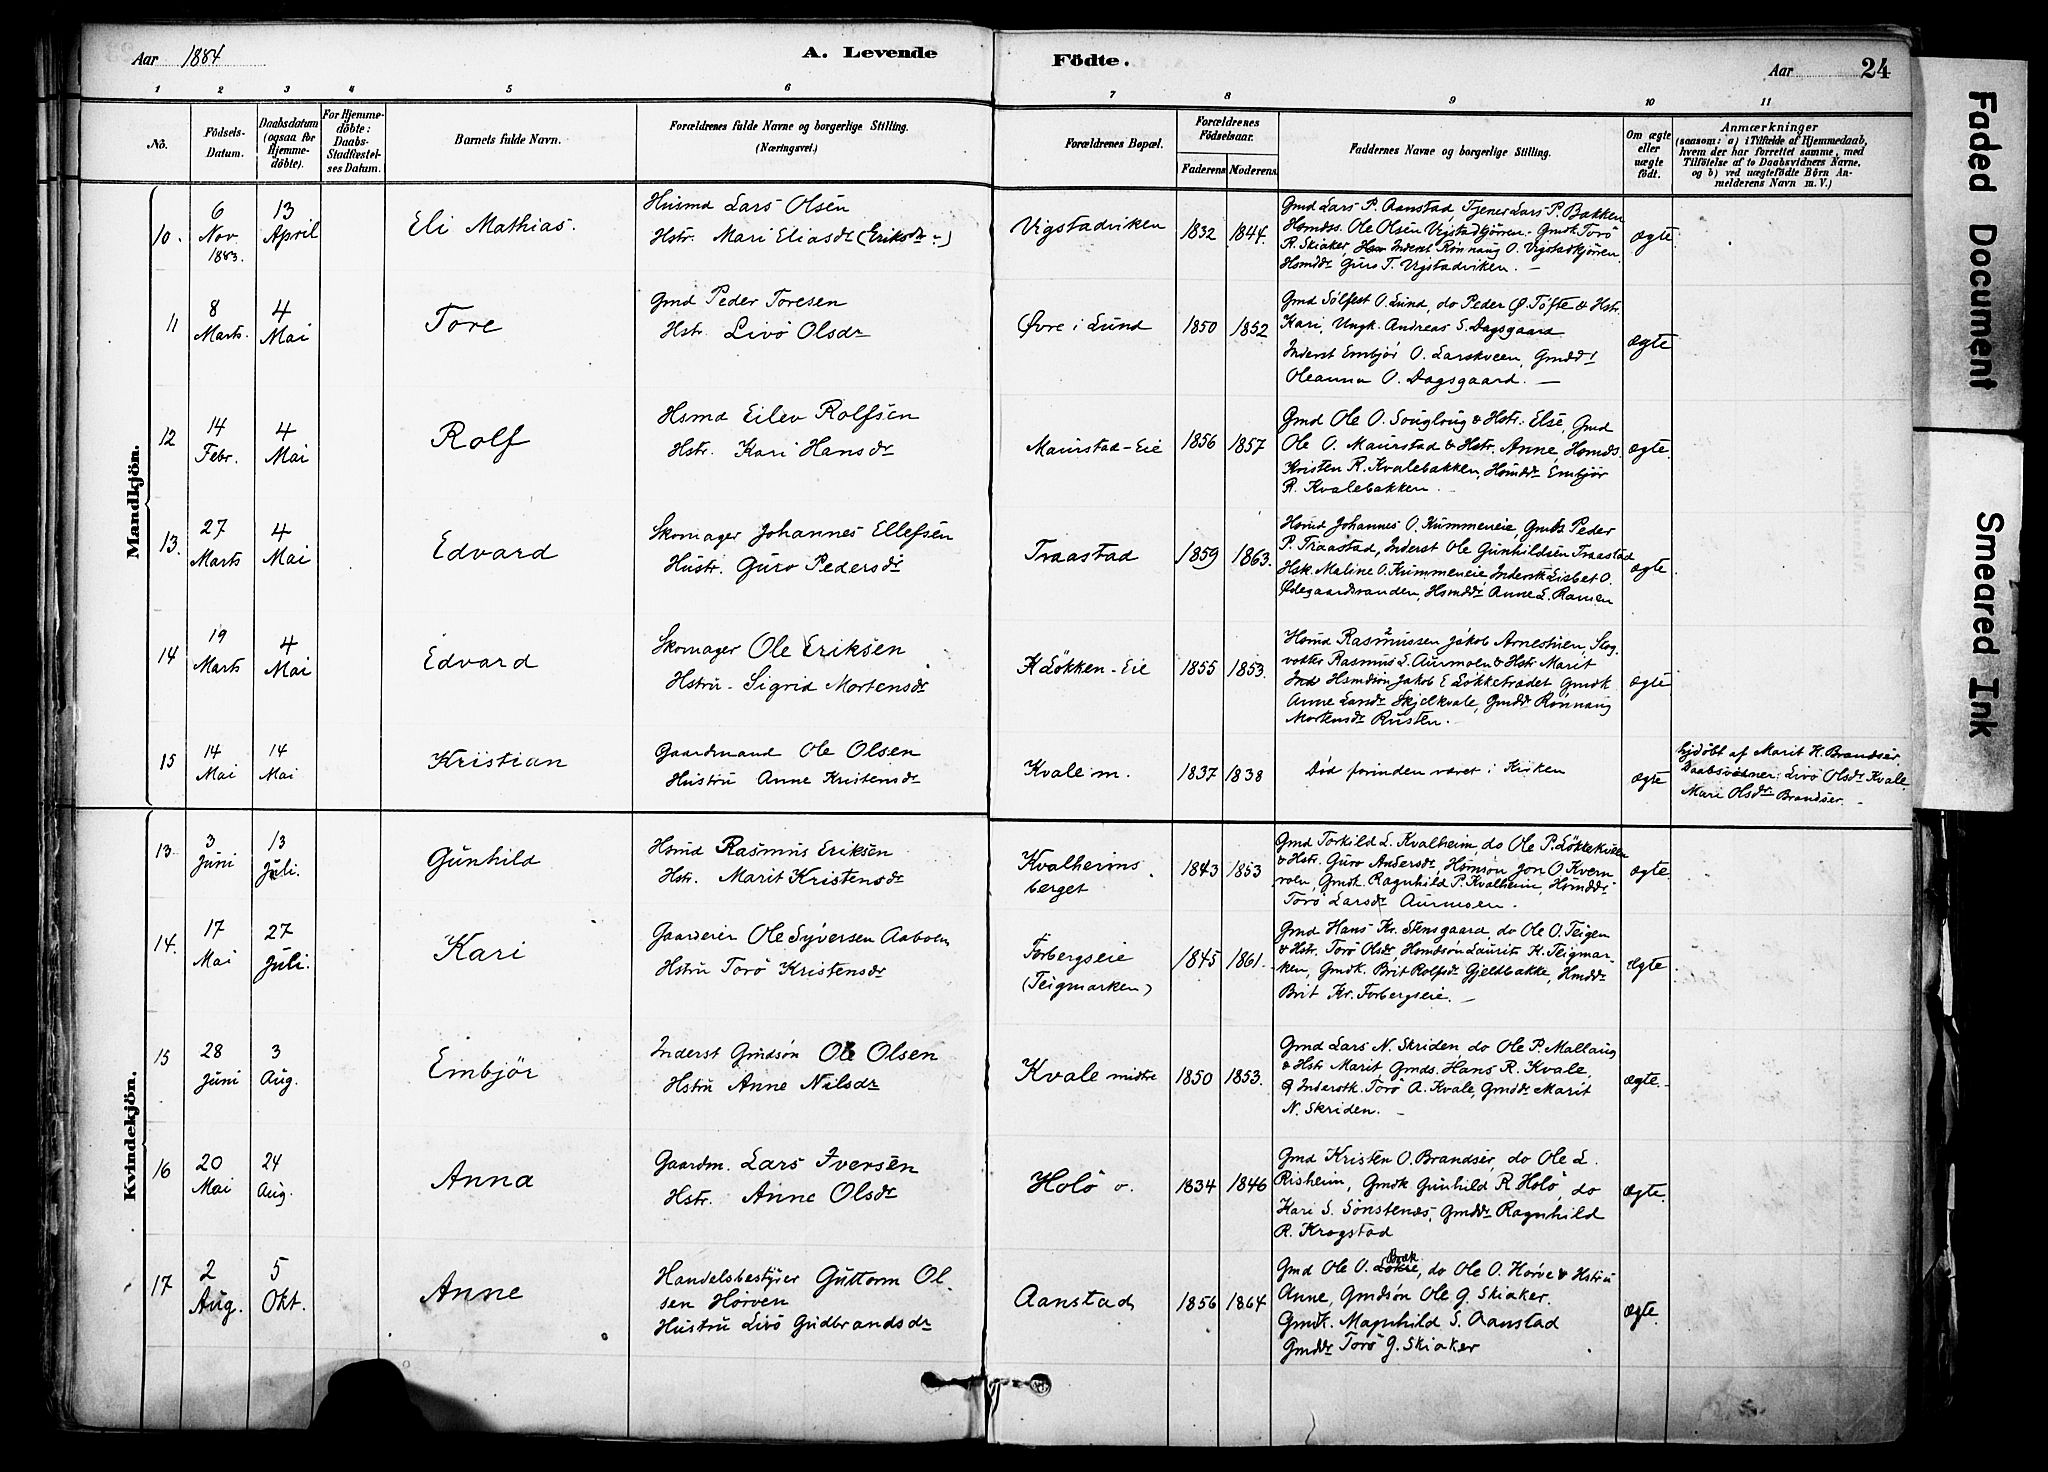 Aar 1884
A. Levende
Födte.
Aar
24
1 2 3 4 5 6 7 8 9 10 11
No.
Födsels-
Datum.
Daabsdatum
(ogsaa for
Hjemme-
döbte).
For Hjemme-
döbte:
Daabs-
Stadfæstel-
ses Datum.
Barnets fulde Navn.
Forældrenes fulde Navne og borgerlige Stilling.
(Næringsvei.)
Forældrenes Bopæl.
Forældrenes
Födselsaar.
Faderens Moderens
Faddernes Navne og borgerlige Stilling.
Om ægte
eller
uægte
födt.
Anmærkninger
(saasom: a) i Tilfælde af Hjemmedaab,
hvem der har forrettet samme, med
Tilföielse af to Daabsvidners Navne,
og b) ved uægtefödte Börn An-
melderens Navn m. V.)
Mandkjön.
10.
6
Nov.
1883.
13
April
Eli Mathias.
Husmd Lars Olsen
Hstr. Mari Eliasdr (Eriksdr)
Vigstadviken
1832
1844.
Gmd Lars P. Aanstad, Tjener Lars P. Bakken
Hsmdss. Ole Olsen Vigstadkjørren. Gmdk Torö
R. Skiaker, Inderst Rönnaug O. Vigstadkjørren
Hsmddr Guro T. Vigstadviken. –
ægte.
11
8
Marts.
4
Mai
Tore
Gmd Peder Toresen
Hstr. Livö Olsdr
Øvre i Lund
1850
1852
Gmd Sölfest O. Lund, do Peder Ø. Tofte & Hstr.
Kari, Ungk. Andreas S. Dagsgaard
Inderst Embjör O. Larskveen, Gmdd
Oleanna O. Dagsgaard. –
ægte
12
14
Febr.
4
Mai
Rolf
Hsmd Eilev Rolfsen
Hstr. Kari Hansdr
Maurstad-Eie
1856
1857
Gmd Ole O. Sougloug & Hstr. Else, Gmd
Ole O. Maurstad & Hstr. Anne, Hsmds.
Kristen R. Kvalebakken, Hsmddr Embjör
R. Kvalebakken. –
ægte.
13.
27
Marts
4
Mai
Edvard
Skomager Johannes Ellefsen
Hustr. Guro Pedersdr
Traastad
1859
1863.
Hsmd Johannes O. Kummeneie, Gmds Peder
P. Traastad, Inderst Ole Gunhildsen Traastad
Hsk. Maline O. Kummeneie, Indersk Lisbet O.
Ödegaardsranden, Hsmddr Anne L. Ramen
ægte
14
19
Marts
4
Mai
Edvard
Skomager Ole Eriksen
Hstru. Sigrid Mortensdr
K Lökken-Eie
1855
1853.
Hsmd Rasmussen Jakob Arnestuen, Skog
vokter Rasmus L. Aurmoen & Hstr Marit
Ind Hsmdsön Jakob E Lökketrædet Gmdk
Anne Larsdr Skjelkvale, Gmddr Rönnaug
Mortensdr Rusten. –
ægte
15
14
Mai
14
Mai
Kristian
Gaardmand Ole Olsen
Hustru Anne Kristensdr
Kvale m.
1837
1838
Död forinden været i Kirken
ægte
hjdöbt af Marit H. Brandser.
Daabsvidner: Livö Olsdr Kvale
Mari Olsdr Brandser. –
Kvindekjön.
13
3
Juni
13
Juli.
Gunhild
Hsmd Rasmus Eriksen
Hstr. Marit Kristensdr
Kvalheims
berget
1843
1853
Gmd Torkild L. Kvalheim, do Ole P. Lökkekvien
& Hstr. Guro Andersdr, Hsmdsön Jon O. Kvern
volv, Gmdk. Ragnhild P. Kvalheim, Hsmddr
Torö Larsdr Aurmoen.
ægte.
14.
17
Mai
27
Juli.
Kari
Gaardeier Ole Syversen Aaboen
Hstru Torö Kristensdr
Forbergseie
(Teigmarken)
1845
1861.
Gmd Hans Kr. Stensgaard, do Ole O. Teigen
& Hstr. Torö Olsdr, Hsmdsön Laurits K. Teigmar-
ken, Gmdk. Brit Rolfsdr Gjeldbakke, Hmddr
Brit Kr. Forbergseie. –
ægte
15
28
Juni
3
Aug.
Embjör
Inderst Gmdsön Ole Olsen
Hstru Anne Nilsdr
Kvale midtre
1850
1853.
Gmd Lars N. Skriden do Ole P. Mallaug
& Hstr Marit Gmds. Hans R. Kvale,
Indersk. Torö A. Kvale, Gmddr Marit
N. Skriden. –
ægte.
16
20
Mai
24
Aug.
Anna
Gaardm. Lars Iversen
Hstr. Anne Olsdr
Holö o.
1834
1846
Gmd Kristen O. Brandser, do Ole L.
Risheim, Gmdk Gunhild R. Holö, do
Kari S. Sönstenes, Gmddr Ragnhild
R. Krogstad
ægte.
17
2
Aug.
5
Okt.
Anne
Handelsbestyrer Guttorm Ol
sen Hörven
Hustru Livö Gudbrandsdr
Aanstad
1856
1864
Gmd Ole O. Bræk, do Ole O. Hörve & Hstru
Anne, Gmdsön Ole G. Skiaker.
Gmdk. Magnhild S. Aanstad
Gmddr Torö G. Skiaker
ægte.
Faded Document
Smeared Ink